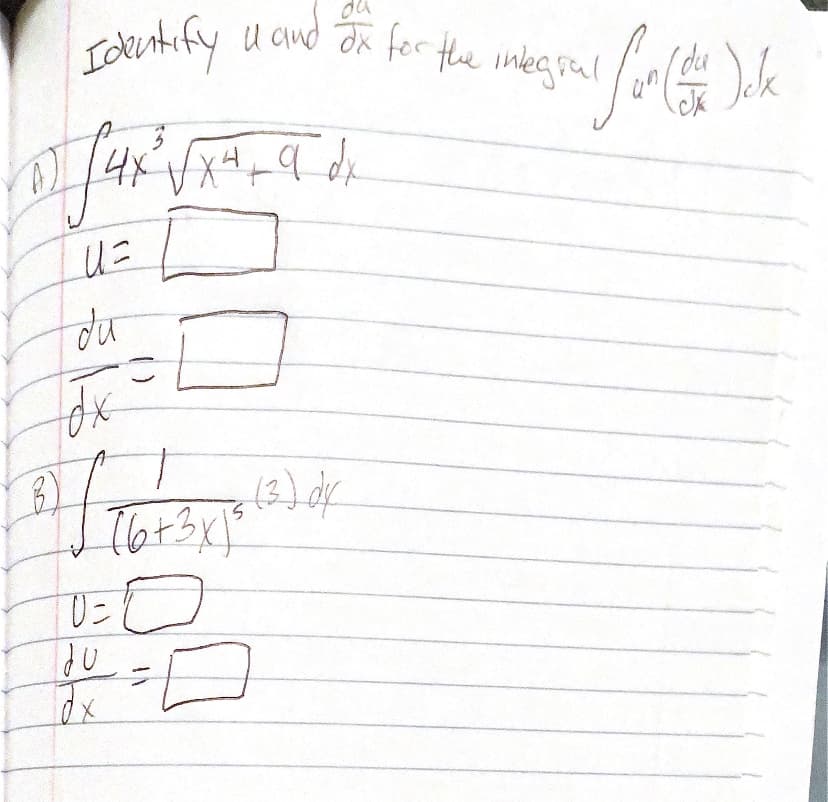 Identify u and du/dx for the integral ∫uⁿ(du/dx)dx
A) ∫4x³√(x⁴+9) dx
u=
du/dx =
B) ∫ 1/(6+3x)⁵ (3) dx
U=
dU/dx =